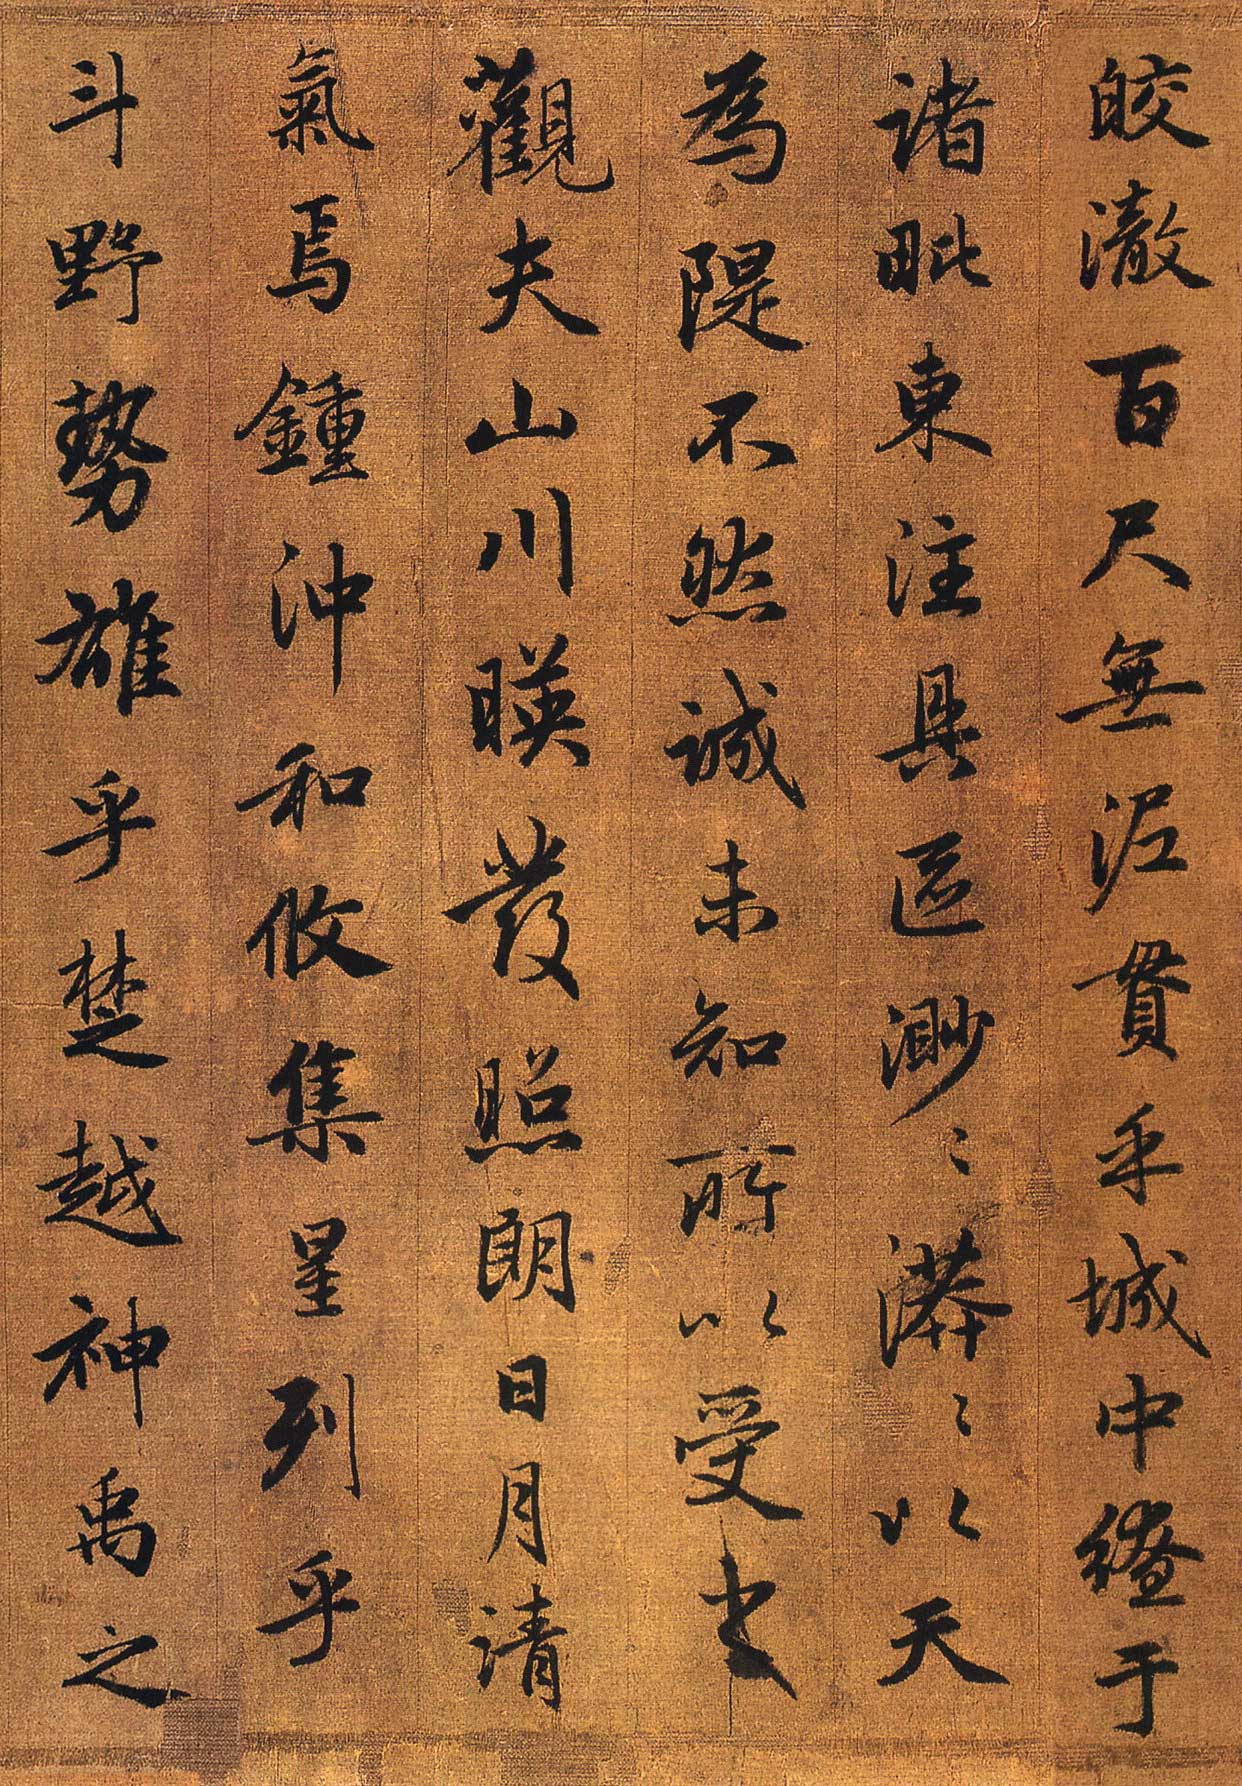 皎澈百尺無泥貫乎城中繚于
諸毗東注具區渺〻漭〻以天
為隄不然誠未知所以受之
觀夫山川暎發照朗日月清
氣焉鍾沖和攸集星列乎
斗野勢雄乎楚越神禹之